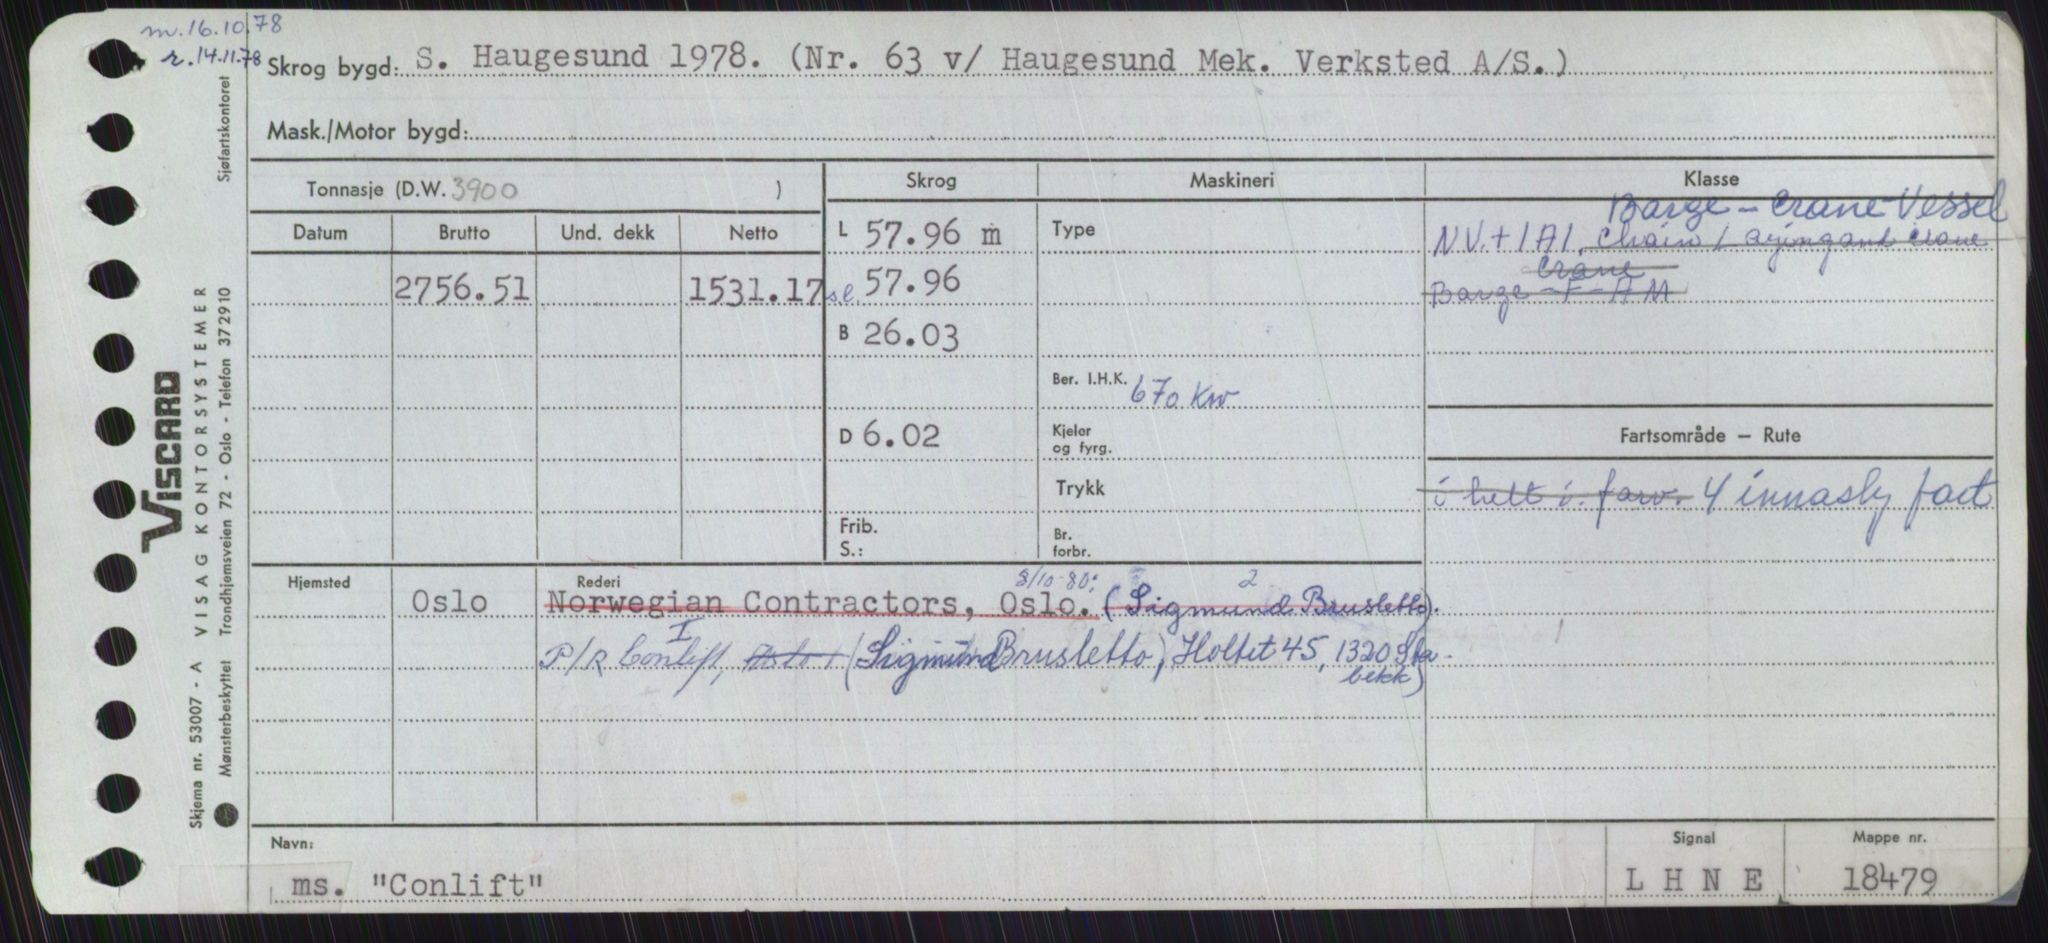 m.16.10.78
r.14.11.78
Skrog bygd: S. Haugesund 1978. (Nr. 63 v/ Haugesund Mek. Verksted A/S.)
Mask./Motor bygd:
Tonnasje (D.W. 3900 )
Skrog
Maskineri
Klasse
Datum
Brutto
Und. dekk
Netto
2756.51
1531.17
L 57.96 m
sl. 57.96
B 26.03
D 6.02
Frib.
S.:
Type
Ber. I.H.K. 670 Kw
Kjeler
og fyrg.
Trykk
Br.
forbr.
Barge - Crane Vessel
N.V. + 1A1, Chain / Crane
Crane
Barge - F - AM
Fartsområde - Rute
i helt i. farv. 4 fart
Hjemsted
Oslo
Rederi
8/10-80: 2
Norwegian Contractors, Oslo. (Sigmund Brusletto).
I
P/R Conlift, Oslo, (Sigmund Brusletto, Holtet 45, 1320 Sta-
bekk)
Navn:
ms. "Conlift"
Signal
L H N E
Mappe nr.
18479
VISCARD
Skjema nr. 53007 - A VISAG KONTORSYSTEMER
Mønsterbeskyttet Trondhjemsveien 72 - Oslo - Telefon 37 29 10 Sjøfartskontoret